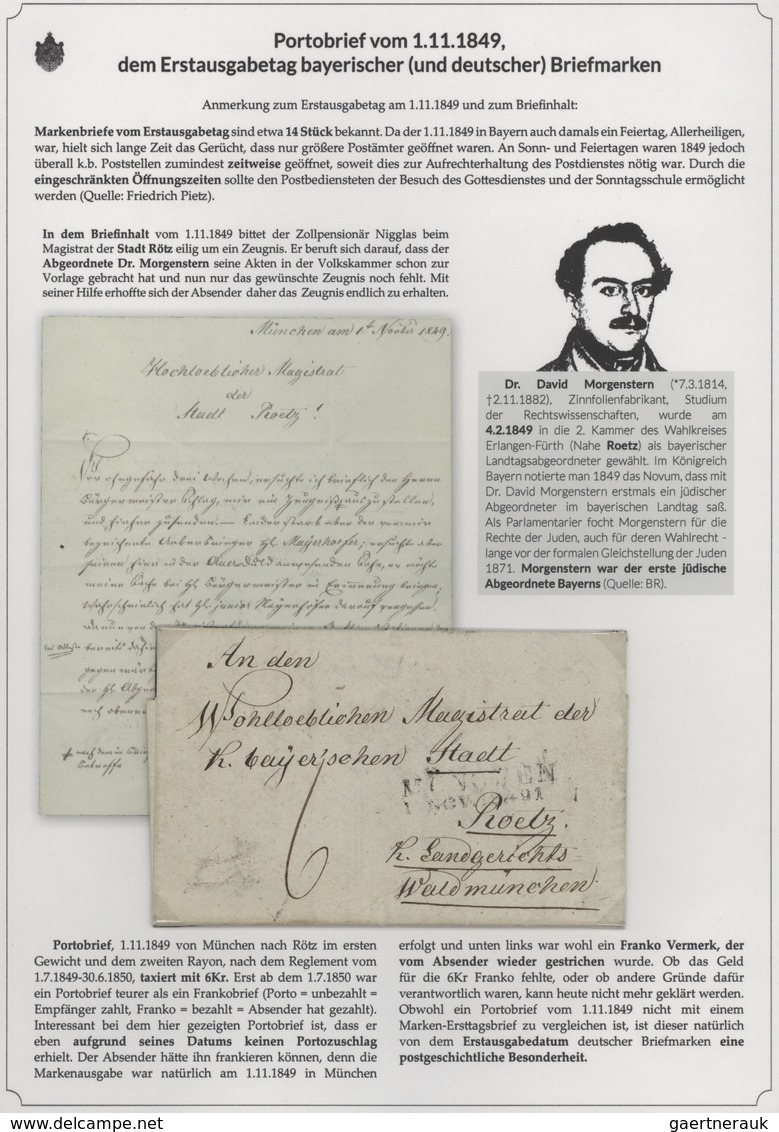 Portobrief vom 1.11.1849,
dem Erstausgabetag bayerischer (und deutscher) Briefmarken
Anmerkung zum Erstausgabetag am 1.11.1849 und zum Briefinhalt:
Markenbriefe vom Erstausgabetag sind etwa 14 Stück bekannt. Da der 1.11.1849 in Bayern auch damals ein Feiertag, Allerheiligen,
war, hielt sich lange Zeit das Gerücht, dass nur größere Postämter geöffnet waren. An Sonn- und Feiertagen waren 1849 jedoch
überall k.b. Poststellen zumindest zeitweise geöffnet, soweit dies zur Aufrechterhaltung des Postdienstes nötig war. Durch die
eingeschränkten Öffnungszeiten sollte den Postbediensteten der Besuch des Gottesdienstes und der Sonntagsschule ermöglicht
werden (Quelle: Friedrich Pietz).
In dem Briefinhalt vom 1.11.1849 bittet der Zollpensionär Nigglas beim
Magistrat der Stadt Rötz eilig um ein Zeugnis. Er beruft sich darauf, dass der
Abgeordnete Dr. Morgenstern seine Akten in der Volkskammer schon zur
Vorlage gebracht hat und nun nur das gewünschte Zeugnis noch fehlt. Mit
seiner Hilfe erhoffte sich der Absender daher das Zeugnis endlich zu erhalten.
München am 1t Novber 1849.
Hochloeblicher Magistrat
der
Stadt Roetz!
Dr. David Morgenstern (*7.3.1814,
†2.11.1882), Zinnfolienfabrikant, Studium
der Rechtswissenschaften, wurde am
4.2.1849 in die 2. Kammer des Wahlkreises
Erlangen-Fürth (Nahe Roetz) als bayerischer
Landtagsabgeordneter gewählt. Im Königreich
Bayern notierte man 1849 das Novum, dass mit
Dr. David Morgenstern erstmals ein jüdischer
Abgeordneter im bayerischen Landtag saß.
Als Parlamentarier focht Morgenstern für die
Rechte der Juden, auch für deren Wahlrecht -
lange vor der formalen Gleichstellung der Juden
1871. Morgenstern war der erste jüdische
Abgeordnete Bayerns (Quelle: BR).
An den
Wohlloeblichen Magistrat der
K. bayer'schen Stadt
MÜNCHEN
1 NOV. 1849
Roetz.
K. Landgerichts
Waldmünchen
6
Portobrief, 1.11.1849 von München nach Rötz im ersten
Gewicht und dem zweiten Rayon, nach dem Reglement vom
1.7.1849-30.6.1850, taxiert mit 6Kr. Erst ab dem 1.7.1850 war
ein Portobrief teurer als ein Frankobrief (Porto = unbezahlt =
Empfänger zahlt, Franko = bezahlt = Absender hat gezahlt).
Interessant bei dem hier gezeigten Portobrief ist, dass er
eben aufgrund seines Datums keinen Portozuschlag
erhielt. Der Absender hätte ihn frankieren können, denn die
Markenausgabe war natürlich am 1.11.1849 in München
erfolgt und unten links war wohl ein Franko Vermerk, der
vom Absender wieder gestrichen wurde. Ob das Geld
für die 6Kr Franko fehlte, oder ob andere Gründe dafür
verantwortlich waren, kann heute nicht mehr geklärt werden.
Obwohl ein Portobrief vom 1.11.1849 nicht mit einem
Marken-Ersttagsbrief zu vergleichen ist, ist dieser natürlich
von dem Erstausgabedatum deutscher Briefmarken eine
postgeschichtliche Besonderheit.
www.delcampe.net
gaertnerauk